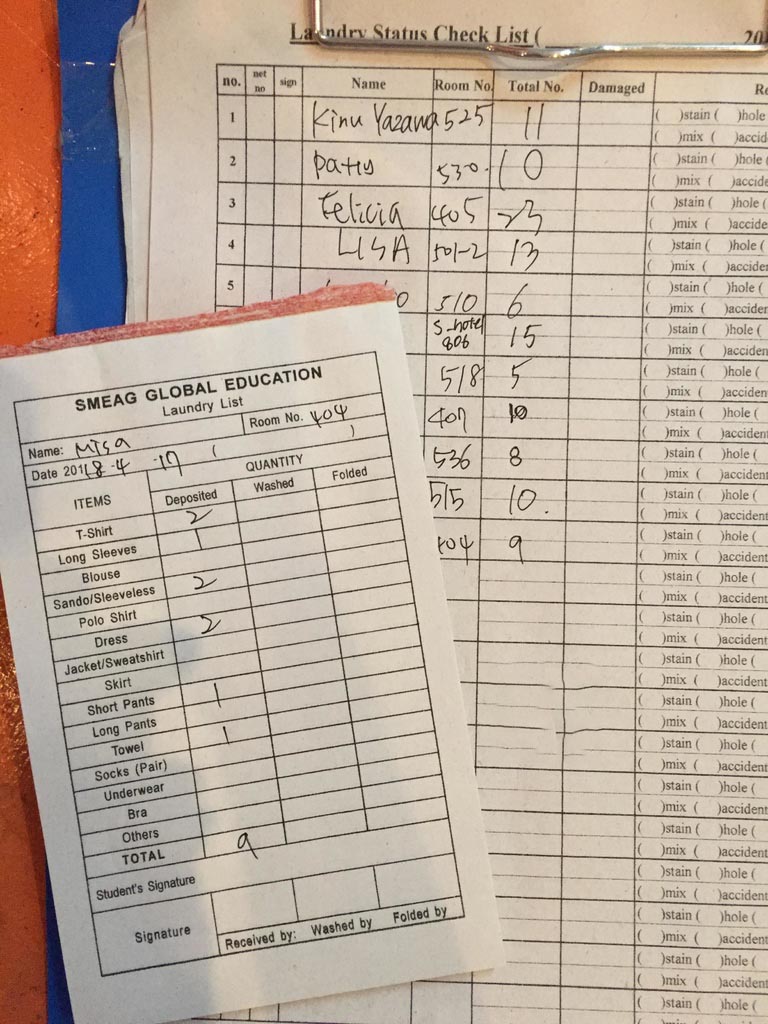 Laundry Status Check List ( 201
no. net no sign Name Room No. Total No. Damaged Re
1 Kinu Yazawa 525 11 ( )stain ( )hole
( )mix ( )accid
2 Patty 530. 10 ( )stain ( )hole
( )mix ( )accide
3 Felicia 405 23 ( )stain ( )hole (
( )mix ( )accide
4 LISA 501-2 13 ( )stain ( )hole (
( )mix ( )acciden
5 510 6 ( )stain ( )hole (
( )mix ( )acciden
S-hotel 806 15 ( )stain ( )hole (
( )mix ( )acciden
518 5 ( )stain ( )hole (
( )mix ( )acciden
407 10 ( )stain ( )hole (
( )mix ( )acciden
536 8 ( )stain ( )hole (
( )mix ( )acciden
515 10. ( )stain ( )hole (
( )mix ( )acciden
404 9 ( )stain ( )hole (
( )mix ( )accident
( )stain ( )hole (
( )mix ( )accident
( )stain ( )hole (
( )mix ( )accident
( )stain ( )hole (
( )mix ( )accident
( )stain ( )hole (
( )mix ( )accident
( )stain ( )hole (
( )mix ( )accident
( )stain ( )hole (
( )mix ( )accident
( )stain ( )hole (
( )mix ( )accident
( )stain ( )hole (
( )mix ( )accident
( )stain ( )hole (
( )mix ( )accident
( )stain ( )hole (
( )mix ( )accident
( )stain ( )hole (
SMEAG GLOBAL EDUCATION
Laundry List
Name: Misa Room No. 404
Date 2018-4-17 ( )
ITEMS QUANTITY
Deposited Washed Folded
T-Shirt 2
Long Sleeves 1
Blouse
Sando/Sleeveless 2
Polo Shirt
Dress 2
Jacket/Sweatshirt
Skirt
Short Pants 1
Long Pants
Towel 1
Socks (Pair)
Underwear
Bra
Others
TOTAL 9
Student's Signature
Signature
Received by: Washed by Folded by